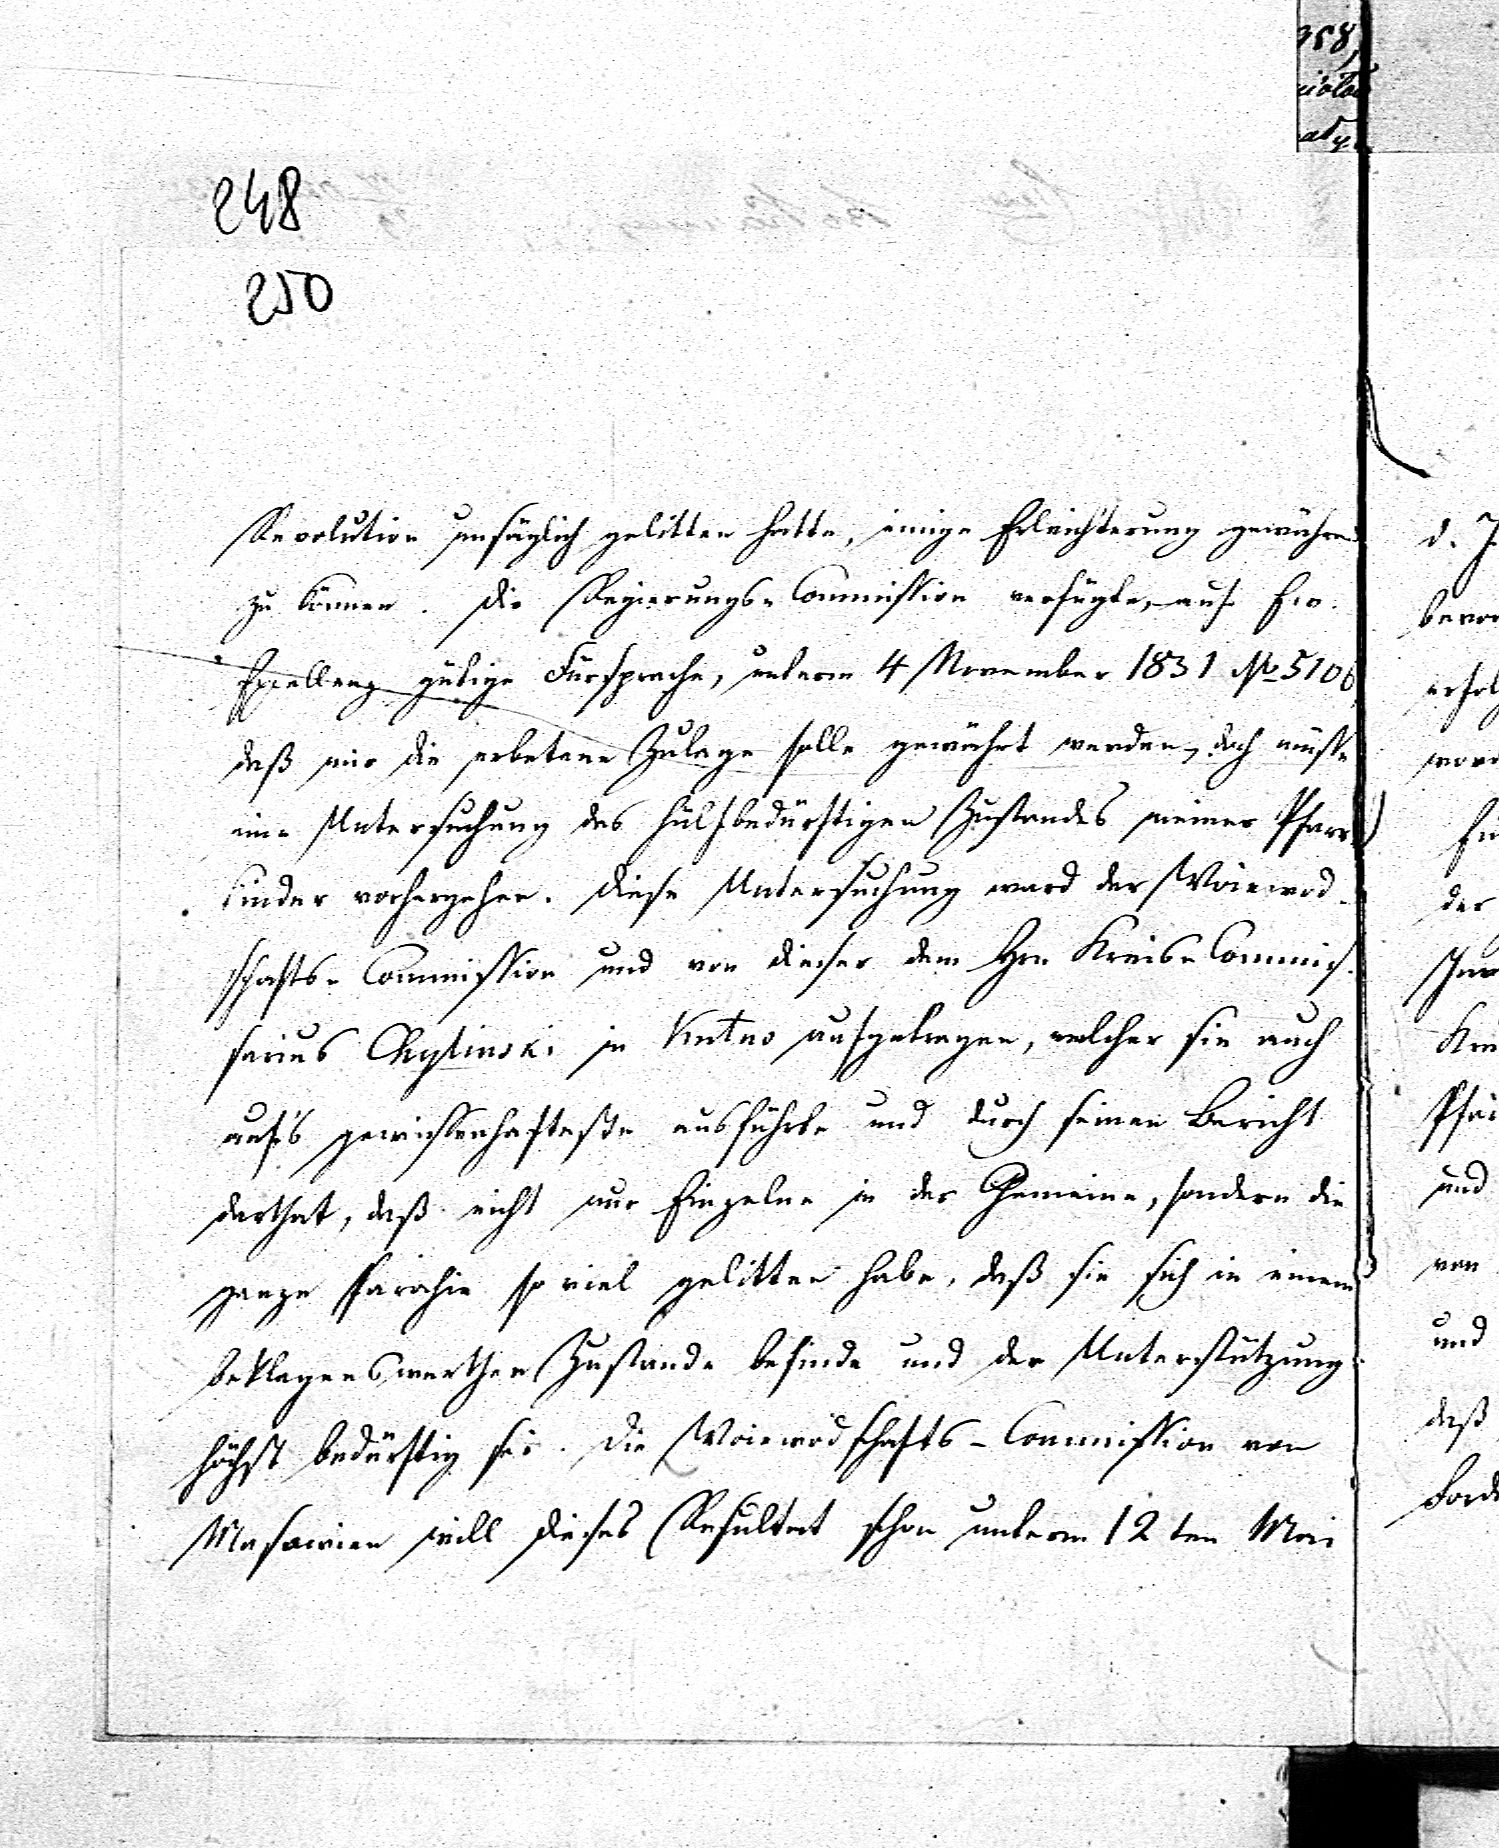 958,
248
250
Revolution unsäglich gelitten hatte, einige Erleichterung gewähren
zu können. Die Regierungs-Commission verfügte, auf Ew.
Excellenz gütige Fürsprache, unterm 4 November 1831 No 5106
daß mir die erbetene Zulage solle gewährt werden, doch müsse
eine Untersuchung des hülfsbedürftigen Zustandes meiner Pfarr-
kinder vorhergehen. Diese Untersuchung ward der Woiewod-
schafts-Commission und von dieser dem Hrn Kreis-Commis-
sarius Chylinski in Kutno aufgetragen, welcher sie auch
auf's gewissenhafteste ausführte und durch seinen Bericht
darthat, daß nicht nur Einzelne in der Gemeine, sondern die
ganze Parochie so viel gelitten habe, daß sie sich in einem
beklagenswerthen Zustande befinde und der Unterstützung
höchst bedürftig sei. Die Woiewodschafts-Commission von
Masowien will dieses Resultat schon unterm 12ten Mai
d. J.
und
von
und
daß